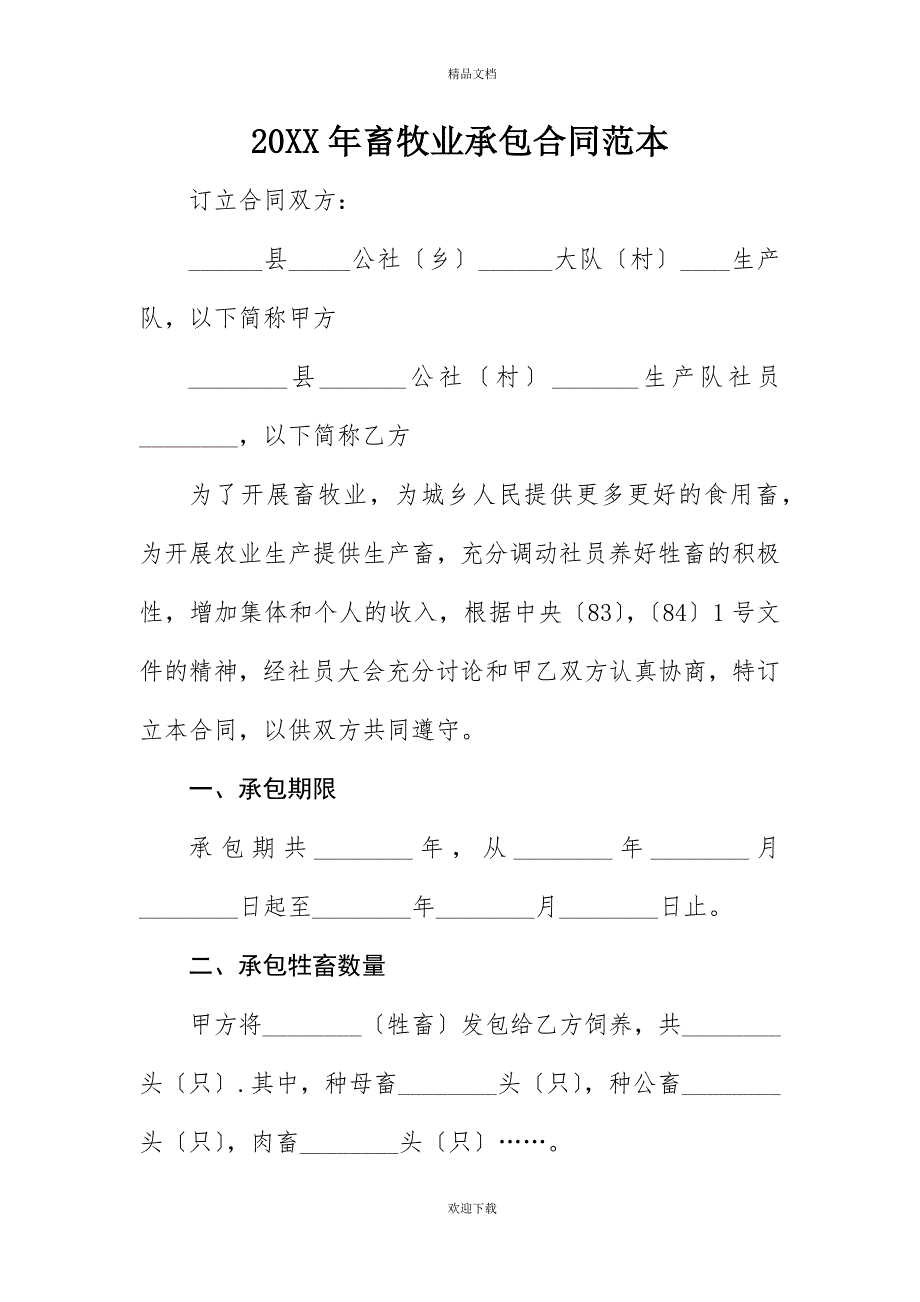 精品文档
20XX年畜牧业承包合同范本
订立合同双方：
______县_____公社〔乡〕______大队〔村〕____生产
队，以下简称甲方
________县_______公社〔村〕_______生产队社员
________，以下简称乙方
为了开展畜牧业，为城乡人民提供更多更好的食用畜，
为开展农业生产提供生产畜，充分调动社员养好牲畜的积极
性，增加集体和个人的收入，根据中央〔83〕，〔84〕1号文
件的精神，经社员大会充分讨论和甲乙双方认真协商，特订
立本合同，以供双方共同遵守。
一、承包期限
承包期共________年，从________年________月
________日起至________年________月________日止。
二、承包牲畜数量
甲方将________〔牲畜〕发包给乙方饲养，共________
头〔只〕.其中，种母畜________头〔只〕，种公畜________
头〔只〕，肉畜________头〔只〕……。
欢迎下载